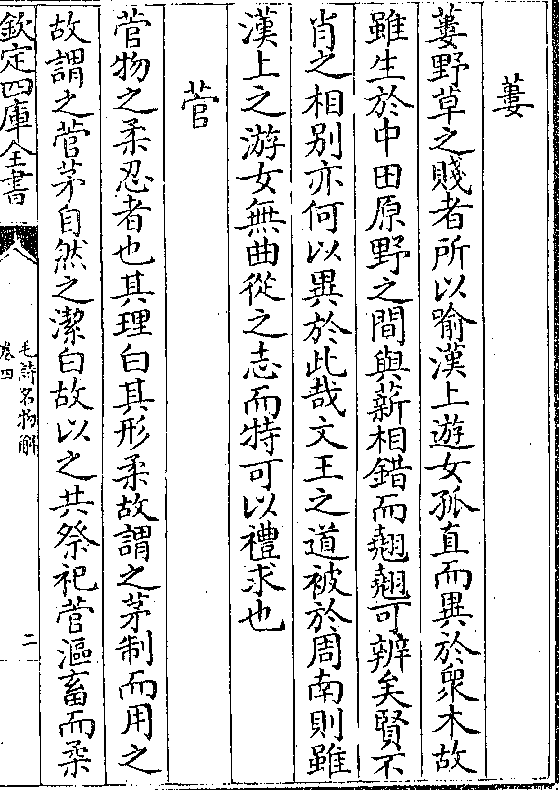 蔞
蔞野草之賤者所以喻漢上遊女孤直而異於衆木故
雖生於中田原野之間與薪相錯而翹翹可辨矣賢不
肖之相别亦何以異於此哉文王之道被於周南則雖
漢上之游女無曲從之志而特可以禮求也
菅
菅物之柔忍者也其理白其形柔故謂之茅制而用之
故謂之菅茅自然之潔白故以之共祭祀菅漚畜而柔
欽定四庫全書
毛詩名物解
卷四
二